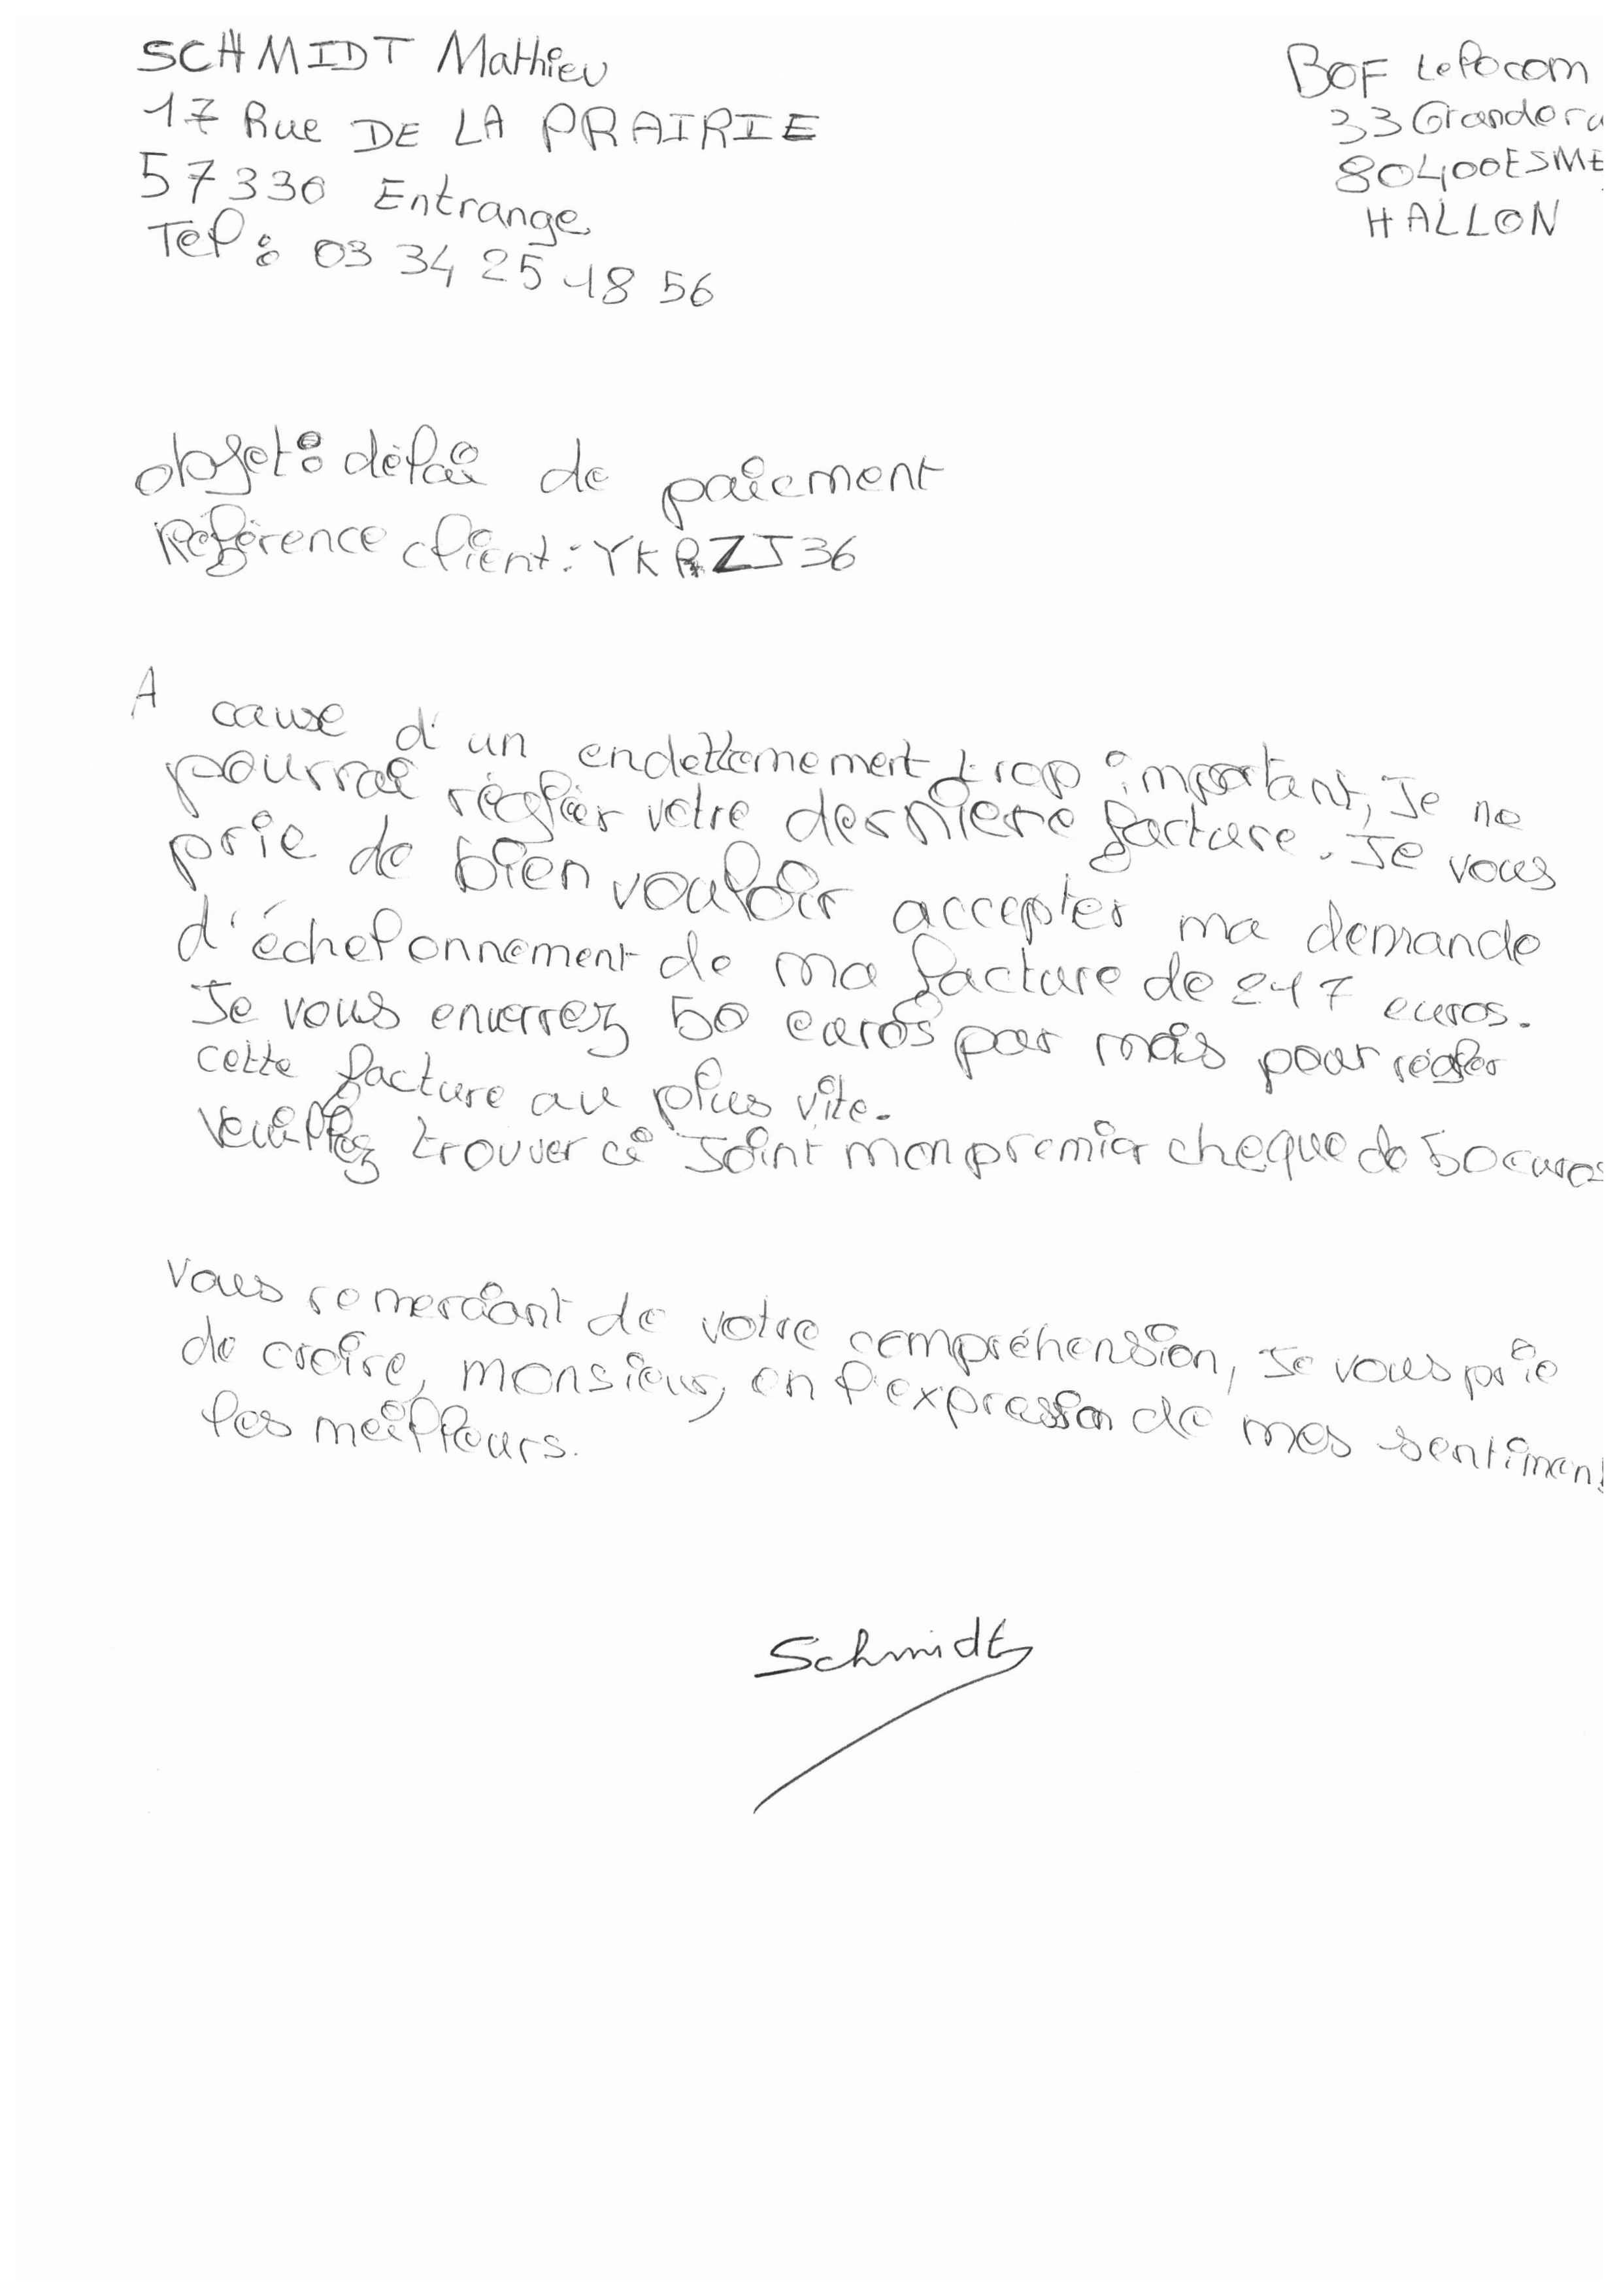 SCHMIDT Mathieu
17 Rue DE LA PRAIRIE
57330 Entrange
Tel : 03 34 25 18 56
BOF Lelocom
33 Grande ru
80400 ESME
HALLON
objet : délai de paiement
Référence client : YKRZJ36
A cause d'un endettemement trop important, Je ne
pourrai régler votre derniere facture. Je vous
prie de bien vouloir accepter ma demande
d'échelonnement de ma facture de 247 euros.
Je vous enverrez 50 euros par mois pour régler
cette facture au plus vite.
Veuillez trouver ci Joint mon premier cheque de 50 euros
Vous remerciant de votre compréhension, Je vous prie
de croire, monsieur, en l'expression de mes sentiment
les meilleurs.
Schmidt